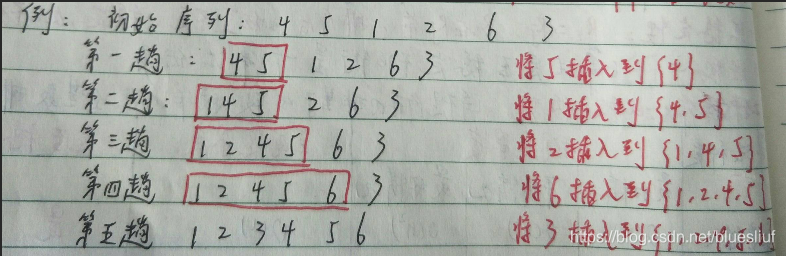 例： 初始序列： 4 5 1 2 6 3
第一趟： 4 5 1 2 6 3 将5插入到{4}
第二趟： 1 4 5 2 6 3 将1插入到{4,5}
第三趟 1 2 4 5 6 3 将2插入到{1,4,5}
第四趟 1 2 4 5 6 3 将6插入到{1,2,4,5}
第五趟 1 2 3 4 5 6 将3插入到{1,2,4,5,
https://blog.csdn.net/bluesliuf